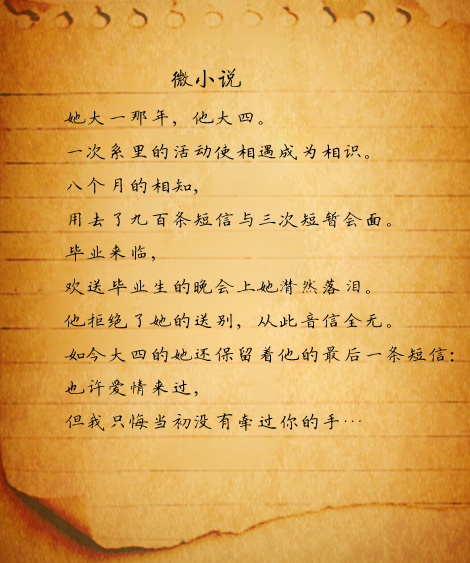 微小说
她大一那年，他大四。
一次系里的活动使相遇成为相识。
八个月的相知，
用去了九百条短信与三次短暂会面。
毕业来临，
欢送毕业生的晚会上她潸然落泪。
他拒绝了她的送别，从此音信全无。
如今大四的她还保留着他的最后一条短信：
也许爱情来过，
但我只悔当初没有牵过你的手…